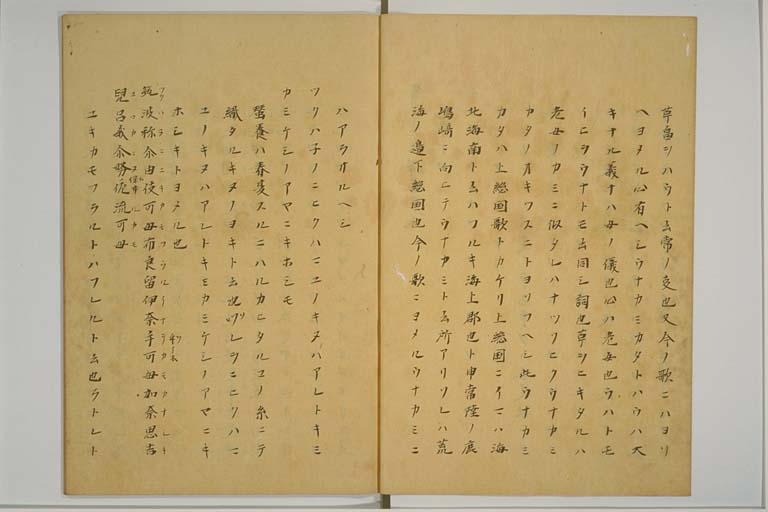 草ヲハウト云常ノ夏也又今ノ歌ニハヨリ
ヘヨメル心有ヘシウナカミカタトハウハ大
キナル義ナハ母ノ儀也心ハ老女也ウハトモ
イニシウナトモ云同シ詞也草シヒキタルハ
老女ノカミニ似タレハナツケヒクウナカミ
カタノオキツスニトヨソフヘシ此ウナカミ
カタハ上総国歌トカケリ上総国ニイマハ海
北海南ト云ハフルキ海上郡也ト申常陸ノ鹿
嶋崎ニ向ヒテウナカミト云所アリソレハ荒
海ノ邊下総国也今ノ歌ニヨメルウナカミニ
ハアラサルヘシ
ツクハ子ノニヒクハマユノキヌハアレトキミ
カミケシノアヤニキホシモ
蚕養ハ春夏スルニハルカヒタルマユノ糸ニテ
織タルキヌノヨキト云也ソレヲニヒクハマ
ユノキヌハアレトキミカミケシノアヤニキ
ホシキトヨメル也
筑波祢尓由伎可母布良留伊奈乎可母加奈思吉
兒呂我尓努保佐流可母
ユキカモフラルトハフレルト云也ラトレト